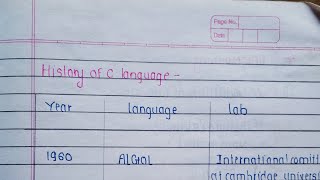 Page No.
Date
History of C language -
Year language lab
1960 ALGOL International comitt
at cambridge univers